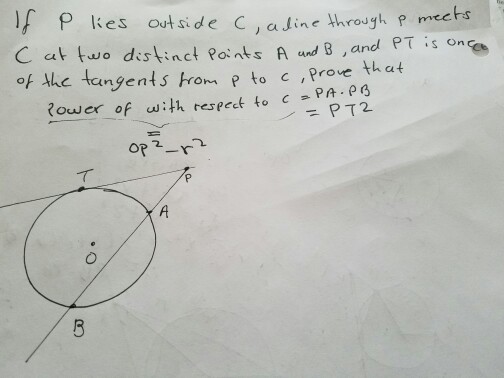 If P lies outside C, a line through P meets
C at two distinct Points A and B, and PT is one
of the tangents from P to C, Prove that
Power of with respect to C = PA.PB
= PT2
=
OP²-r²
T
P
A
O
B